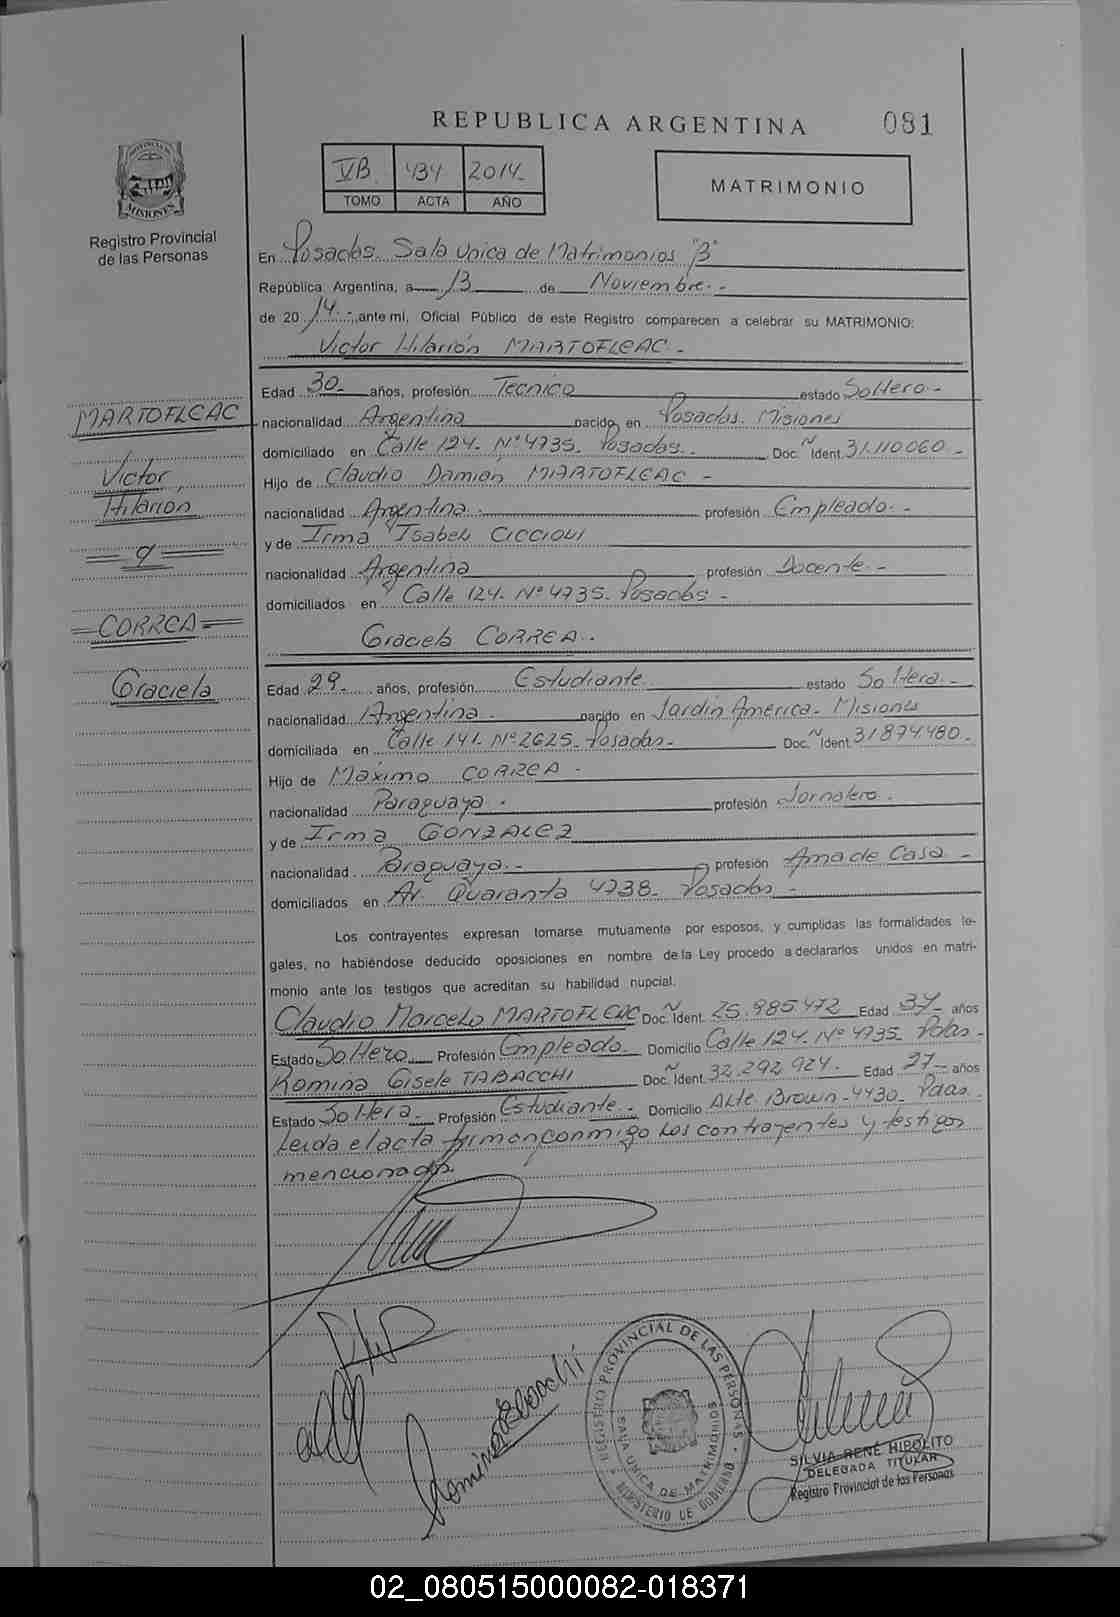 REPUBLICA ARGENTINA 081
PROVINCIA DE MISIONES
Registro Provincial
de las Personas
VB 434 2014
TOMO ACTA AÑO
MATRIMONIO
En Posadas Sala Unica de Matrimonios "B"
República Argentina, a 13 de Noviembre.-
de 2014.-, ante mi, Oficial Público de este Registro comparecen a celebrar su MATRIMONIO:
Victor Hilarión MARTOFLEAC.-
Edad 30.- años, profesión Tecnico estado Soltero.-
nacionalidad Argentina nacido en Posadas. Misiones
domiciliado en Calle 124. Nº 4735. Posadas. Doc. Ident. 31.110.060.-
Hijo de Claudio Damión MARTOFLEAC -
nacionalidad Argentina. profesión Empleado.-
y de Irma Isabel CICCIOLI
nacionalidad Argentina profesión Docente.-
domiciliados en Calle 124. Nº 4735. Posadas -
MARTOFLEAC
Victor
Hilarión
y
CORREA
Graciela
Graciela CORREA.-
Edad 29.- años, profesión Estudiante estado Soltera.-
nacionalidad Argentina. nacido en Jardin América. Misiones
domiciliada en Calle 141. Nº 2625. Posadas.- Doc. Ident. 31894480.-
Hijo de Máximo CORREA -
nacionalidad Paraguaya. profesión Jornalero.
y de Irma GONZALEZ
nacionalidad Paraguaya.- profesión Ama de Casa.-
domiciliados en Av. Quaranta 4738. Posadas -
Los contrayentes expresan tomarse mutuamente por esposos, y cumplidas las formalidades le-
gales, no habiéndose deducido oposiciones en nombre de la Ley procedo a declararlos unidos en matri-
monio ante los testigos que acreditan su habilidad nupcial.
Claudio Marcelo MARTOFLEAC Doc. Ident. 25.985.472 Edad 37 años
Estado Soltero Profesión Empleado Domicilio Calle 124. Nº 4735. Pdas.-
Romina Gisele TABACCHI Doc. Ident. 32.292.924. Edad 27 años
Estado Soltera. Profesión Estudiante.- Domicilio Alte. Brown 4430. Pdas.
Leida el acta firman conmigo los contrayentes y testigos
mencionados.
Romina Tabacchi
REGISTRO PROVINCIAL DE LAS PERSONAS
SALA UNICA DE MATRIMONIOS
MINISTERIO DE GOBIERNO
SILVIA RENÉ HIPOLITO
DELEGADA TITULAR
Registro Provincial de las Personas
02_080515000082-018371